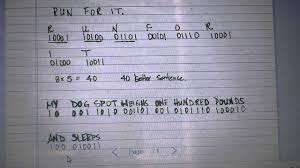 RUN FOR IT.
R U N F O R
10001 10100 01101 00101 01110 10001
I T
01000 10011
8 x 5 = 40 40 letter sentence.
MY DOG SPOT WEIGHS ONE HUNDRED POUNDS
10 001 1010
AND SLEEPS
100 010011
< Page >